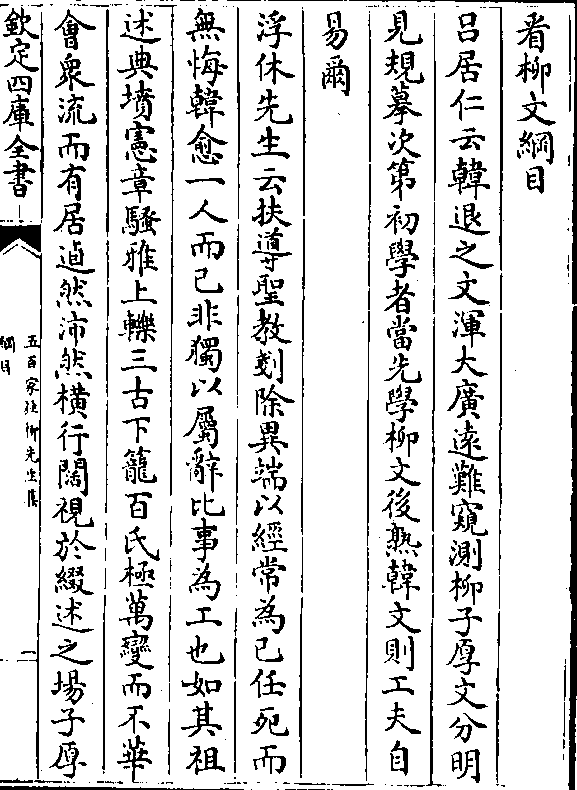 看柳文綱目
吕居仁云韓退之文渾大廣逺難窺測柳子厚文分明
見規摹次第初學者當先學柳文後熟韓文則工夫自
易爾
浮休先生云扶導聖教剗除異端以經常為已任死而
無悔韓愈一人而已非獨以屬辭比事為工也如其祖
述典墳憲章騷雅上轢三古下籠百氏極萬變而不華
會衆流而有居逌然沛然橫行闊視於綴述之塲子厚
欽定四庫全書
五百家註柳先生集
綱目
一